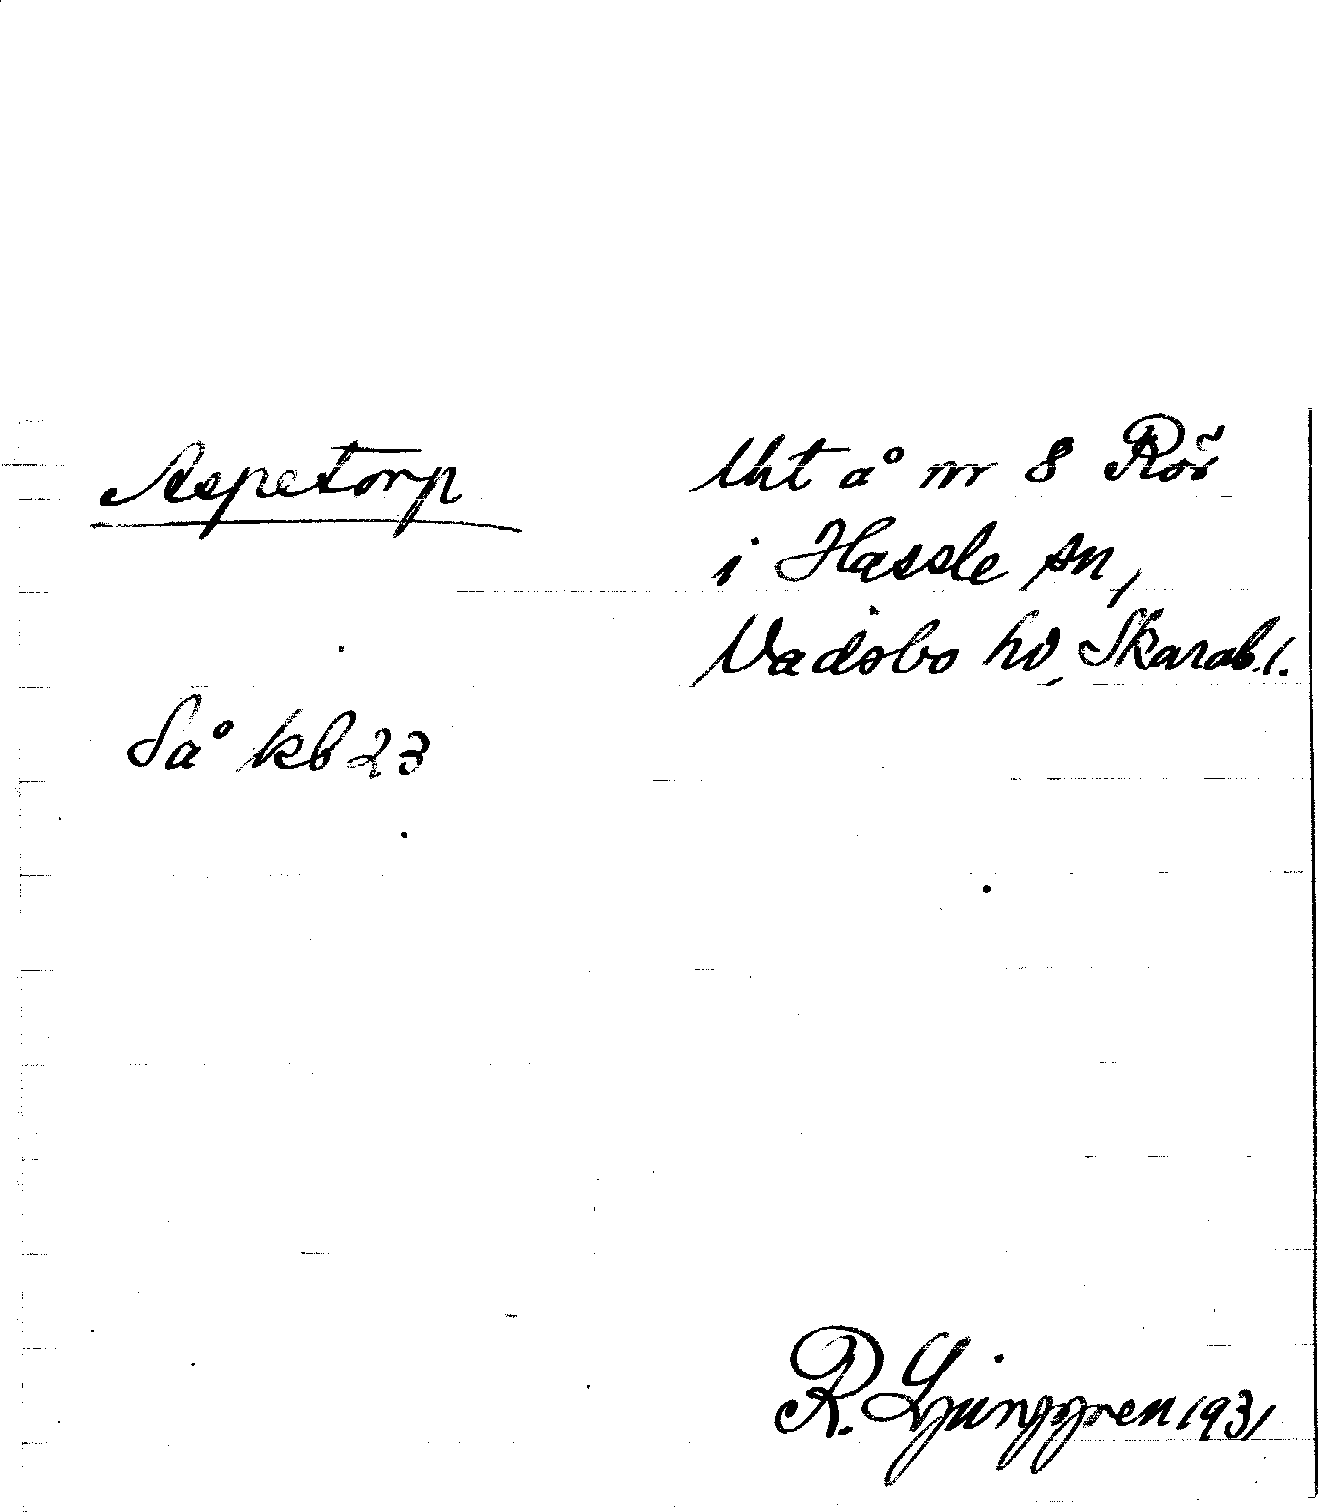 Aspetorp
Uht å nr 8 Rör
i Hassle sn,
Vadsbo hd, Skarab. l.
Så kb 23
R. Ljunggren 1931